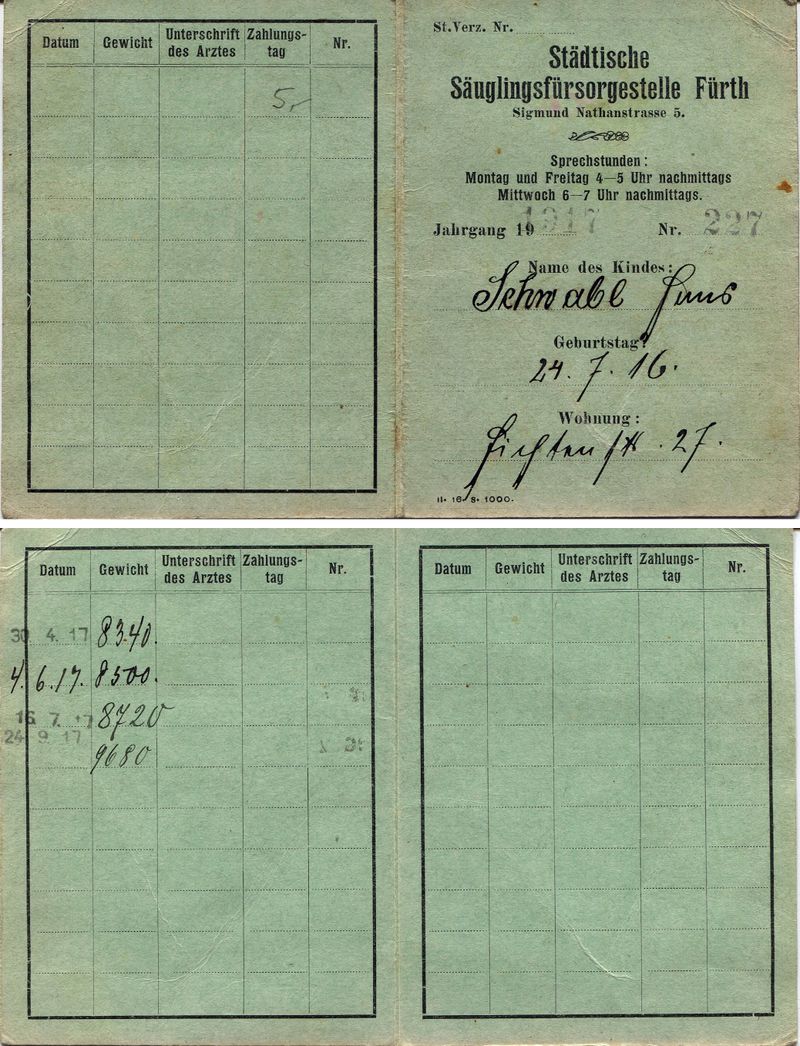 Datum Gewicht Unterschrift des Arztes Zahlungs-tag Nr.
5,-
St.Verz. Nr.
Städtische
Säuglingsfürsorgestelle Fürth
Sigmund Nathanstrasse 5.
Sprechstunden:
Montag und Freitag 4—5 Uhr nachmittags
Mittwoch 6—7 Uhr nachmittags.
Jahrgang 19 1917 Nr. 227
Name des Kindes:
Schwabl Hans
Geburtstag:
24. 7. 16.
Wohnung:
Fichtenstr. 27.
II. 16. S. 1000.
Datum Gewicht Unterschrift des Arztes Zahlungs-tag Nr.
30 4. 17 8340.
4. 6. 17. 8500.
16. 7. 17 8720
24 9. 17 9680
Datum Gewicht Unterschrift des Arztes Zahlungs-tag Nr.